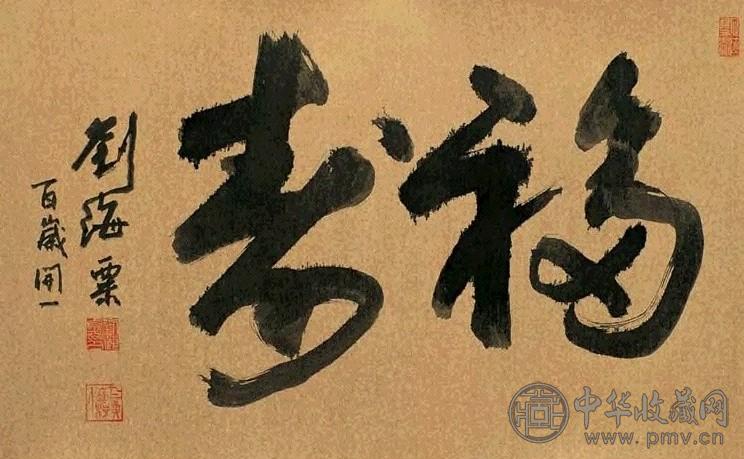 福寿
劉海粟
百歲開一
中华收藏网
www.pmv.cn